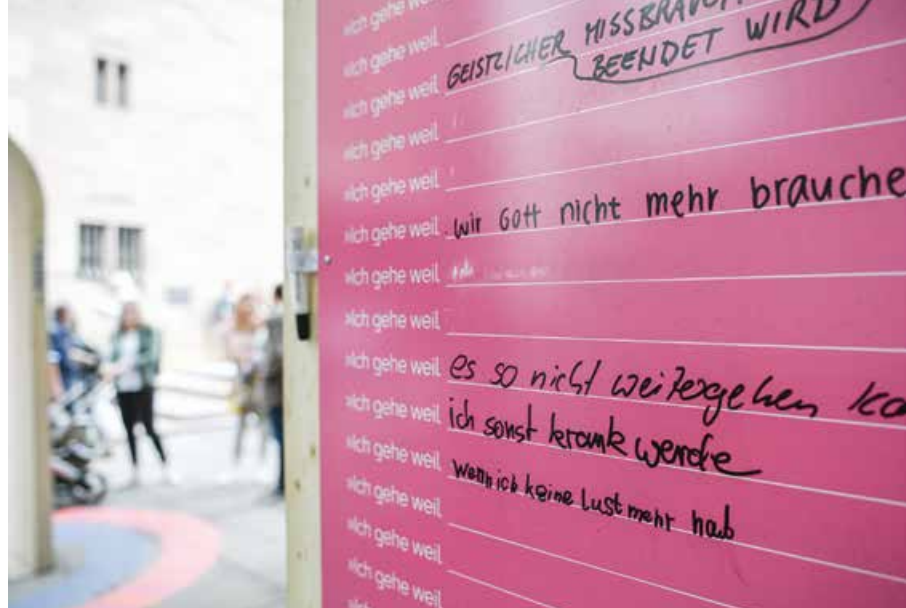 »Ich gehe weil
»Ich gehe weil
»Ich gehe weil GEISTLICHER MISSBRAUCH
BEENDET WIRD
»Ich gehe weil
»Ich gehe weil
»Ich gehe weil wir Gott nicht mehr brauche
»Ich gehe weil
»Ich gehe weil
»Ich gehe weil es so nicht weitergehen ka
»Ich gehe weil ich sonst krank werde
»Ich gehe weil wenn ich keine Lust mehr hab
»Ich gehe weil
»Ich gehe weil
»Ich gehe weil
»Ich gehe weil